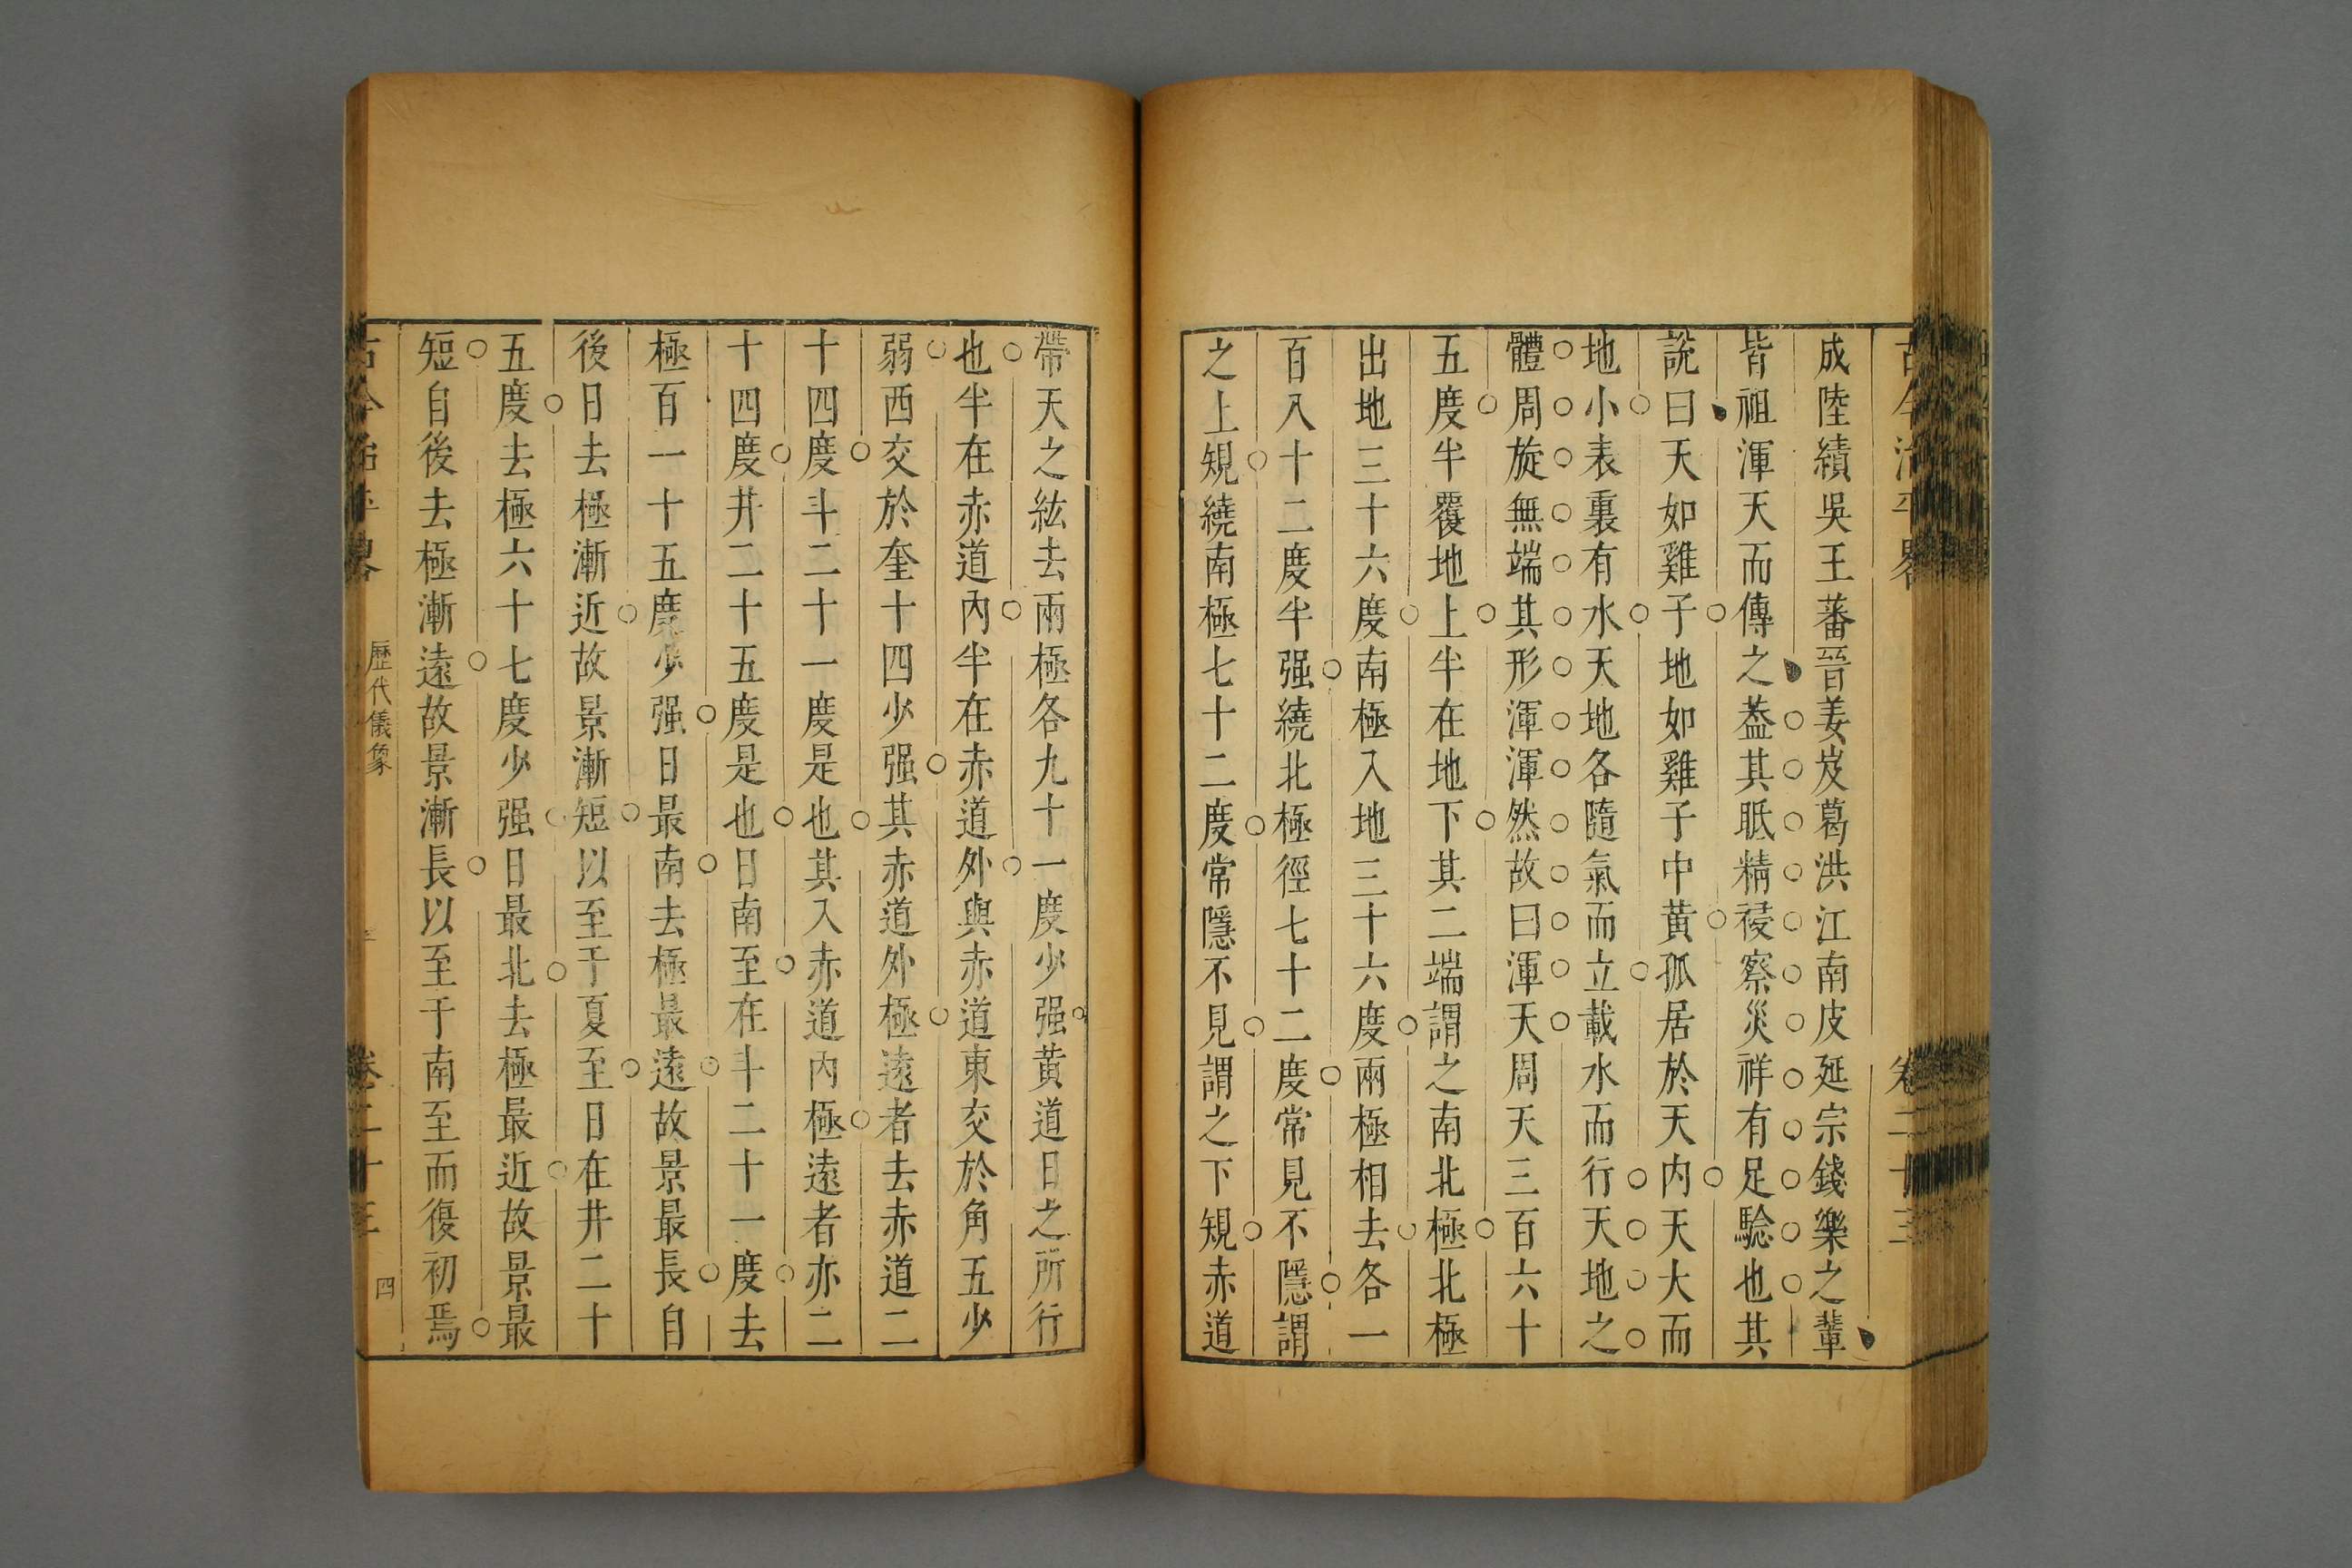 成陸績吳王蕃晉姜岌葛洪江南皮延宗錢樂之輩
皆祖渾天而傳之葢其眂精祲察災祥有足騐也其
說曰天如雞子地如雞子中黃孤居於天内天大而
地小表裏有水天地各隨氣而立載水而行天地之
體周旋無端其形渾渾然故曰渾天周天三百六十
五度半覆地上半在地下其二端謂之南北極北極
出地三十六度南極入地三十六度兩極相去各一
百八十二度半强繞北極徑七十二度常見不隱謂
之上規繞南極七十二度常隱不見謂之下規赤道
帶天之紘去兩極各九十一度少强黄道日之所行
也半在赤道內半在赤道外與赤道東交於角五少
弱西交於奎十四少强其赤道外極遠者去赤道二
十四度斗二十一度是也其入赤道內極遠者亦二
十四度井二十五度是也日南至在斗二十一度去
極百一十五度少强日最南去極最遠故景最長自
後日去極漸近故景漸短以至于夏至日在井二十
五度去極六十七度少强日最北去極最近故景最
短自後去極漸遠故景漸長以至于南至而復初焉
古今治平畧 歷代儀象 卷二十三 四